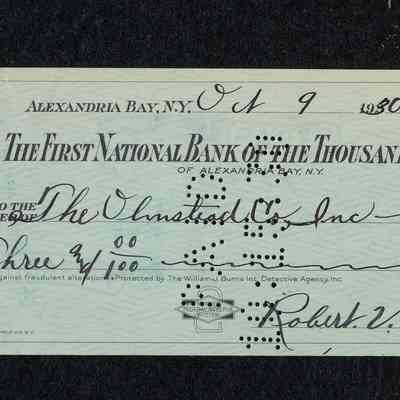 ALEXANDRIA BAY, N.Y. Oct 9 1930
THE FIRST NATIONAL BANK OF THE THOUSAN
OF ALEXANDRIA BAY, N.Y.
O THE
The Olmstead Co., Inc
Three & 00/100
against fraudulent alterations Protected by The William J. Burns Int. Detective Agency, Inc.
Robert. V.